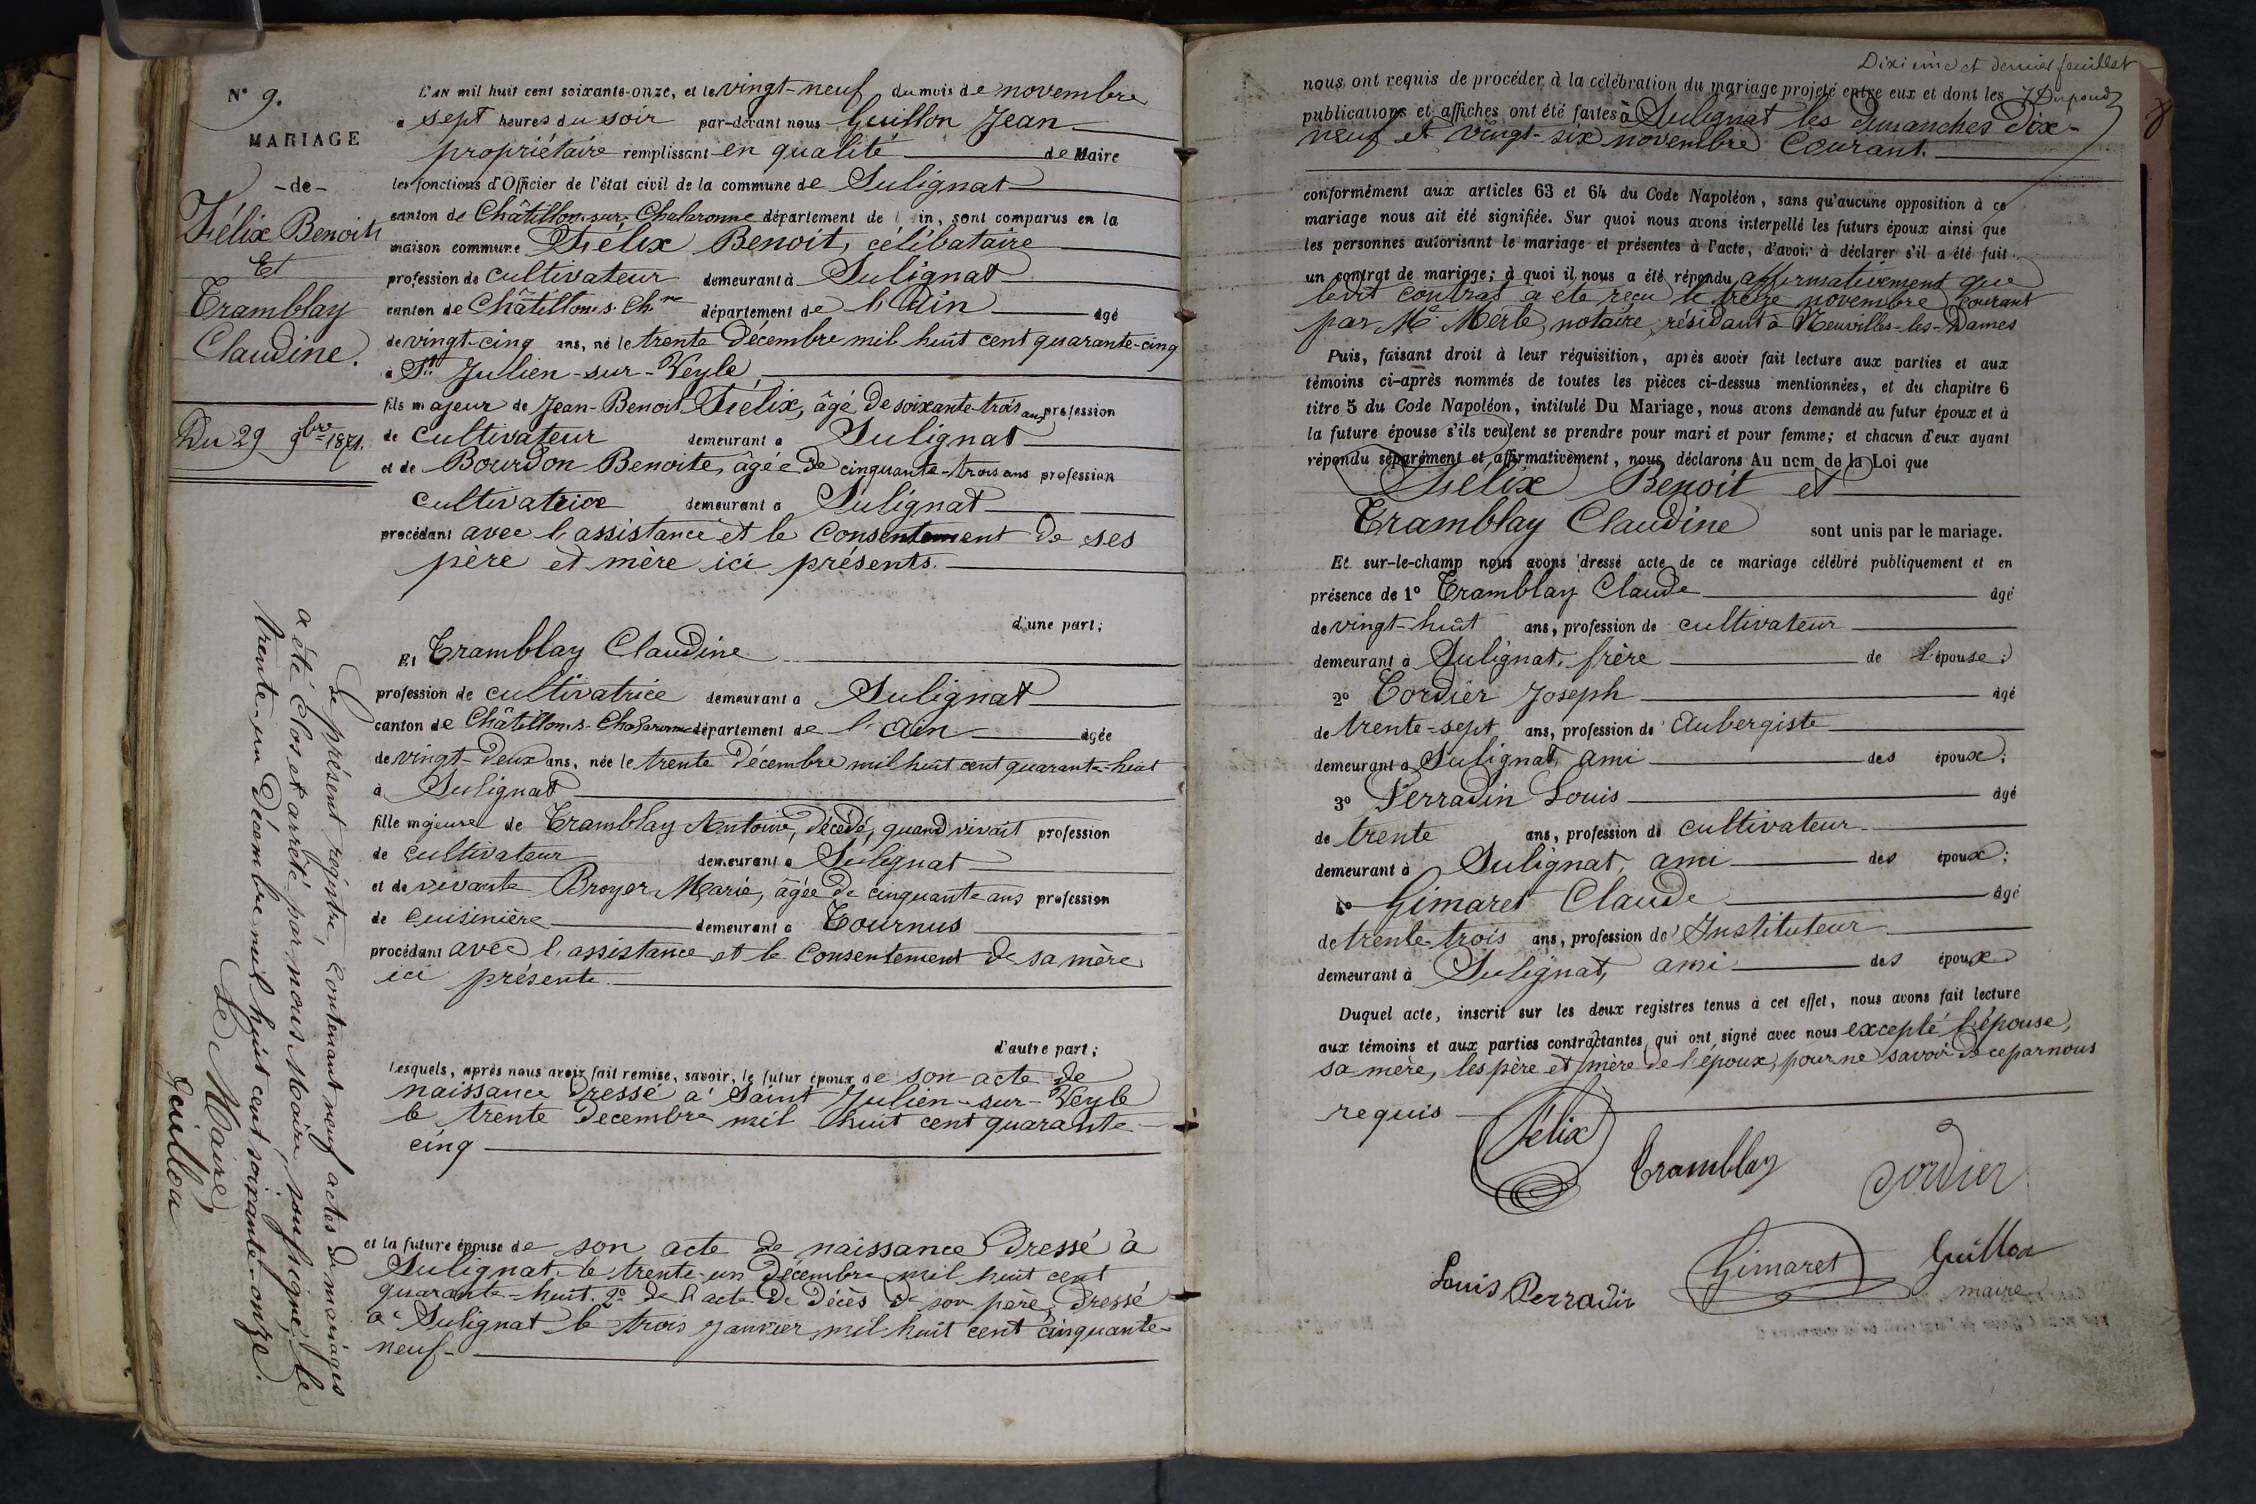 N° 9.
MARIAGE
- de -
Félix Benoit
Et
Tramblay
Claudine.
Du 29 9bre 1871.
L'AN mil huit cent soixante-onze, et le vingt-neuf du mois de novembre
à sept heures du soir par-devant nous Guillon Jean
propriétaire remplissant en qualité de Maire
les fonctions d'Officier de l'état civil de la commune de Sulignat
canton de Châtillon-sur-Chalaronne département de l'Ain, sont comparus en la
maison commune Félix Benoit, célibataire
profession de cultivateur demeurant à Sulignat
canton de Châtillon s. Ch.ne département de l'Ain âgé
de vingt-cinq ans, né le trente Décembre mil huit cent quarante-cinq
à St. Julien-sur-Veyle,
fils majeur de Jean-Benoit Félix, âgé de soixante-trois ans profession
de cultivateur demeurant à Sulignat
et de Bourdon Benoite, âgée de cinquante-trois ans profession
cultivatrice demeurant à Sulignat
procédant avec l'assistance et le consentement de ses
père et mère ici présents.
d'une part;
Et Tramblay Claudine
profession de cultivatrice demeurant à Sulignat
canton de Châtillon-s-Chalaronne département de l'Ain âgée
de vingt-deux ans, née le trente Décembre mil huit cent quarante-huit
à Sulignat
fille majeure de Tramblay Antoine, décédé, quand vivait profession
de cultivateur demeurant à Sulignat
et de vivante Broyer Marie, âgée de cinquante ans profession
de cuisinière demeurant à Tournus
procédant avec l'assistance et le consentement de sa mère
ici présente.
d'autre part;
Lesquels, après nous avoir fait remise, savoir, le futur époux de son acte de
naissance dressé à Saint Julien-sur-Veyle
le trente Decembre mil huit cent quarante-
cinq
et la future épouse de son acte de naissance dressé à
Sulignat le trente-un Décembre mil huit cent
quarante-huit. 2° de l'acte de décès de son père, dressé
à Sulignat le trois Janvier mil huit cent cinquante-
neuf-
Le présent registre, contenant neuf actes de mariages
a été clos et arrêté par nous Maire, soussigné, le
trente-un Décembre mil huit cent soixante-onze.
Le Maire,
Guillon
Dixième et dernier feuillet
nous ont requis de procéder à la célébration du mariage projeté entre eux et dont les
publications et affiches ont été faites à Sulignat les dimanches dix-
neuf et vingt-six novembre courant.
conformément aux articles 63 et 64 du Code Napoléon, sans qu'aucune opposition à ce
mariage nous ait été signifiée. Sur quoi nous avons interpellé les futurs époux ainsi que
les personnes autorisant le mariage et présentes à l'acte, d'avoir à déclarer s'il a été fait
un contrat de mariage; à quoi il nous a été répondu affirmativement que
ledit contrat a été reçu le treize novembre courant
par Me. Merle, notaire, résidant à Neuvilles-les-Dames
Puis, faisant droit à leur réquisition, après avoir fait lecture aux parties et aux
témoins ci-après nommés de toutes les pièces ci-dessus mentionnées, et du chapitre 6
titre 5 du Code Napoléon, intitulé Du Mariage, nous avons demandé au futur époux et à
la future épouse s'ils veulent se prendre pour mari et pour femme; et chacun d'eux ayant
répondu séparément et affirmativement, nous déclarons Au nom de la Loi que
Félix Benoit et
Tramblay Claudine sont unis par le mariage.
Et sur-le-champ nous avons dressé acte de ce mariage célébré publiquement et en
présence de 1° Tramblay Claude âgé
de vingt-huit ans, profession de cultivateur
demeurant à Sulignat, frère de L'épouse;
2° Cordier Joseph âgé
de trente-sept ans, profession de Aubergiste
demeurant à Sulignat, ami des époux;
3° Perradin Louis âgé
de trente ans, profession de cultivateur
demeurant à Sulignat, ami des époux;
4° Gimaret Claude âgé
de trente-trois ans, profession de Instituteur
demeurant à Sulignat, ami des époux
Duquel acte, inscrit sur les deux registres tenus à cet effet, nous avons fait lecture
aux témoins et aux parties contractantes qui ont signé avec nous excepté l'épouse,
sa mère, les père et mère de l'époux, pour ne savoir de ce par nous
requis
Félix
Tramblay
Cordier
Louis Perradin
Gimaret
Guillon
maire